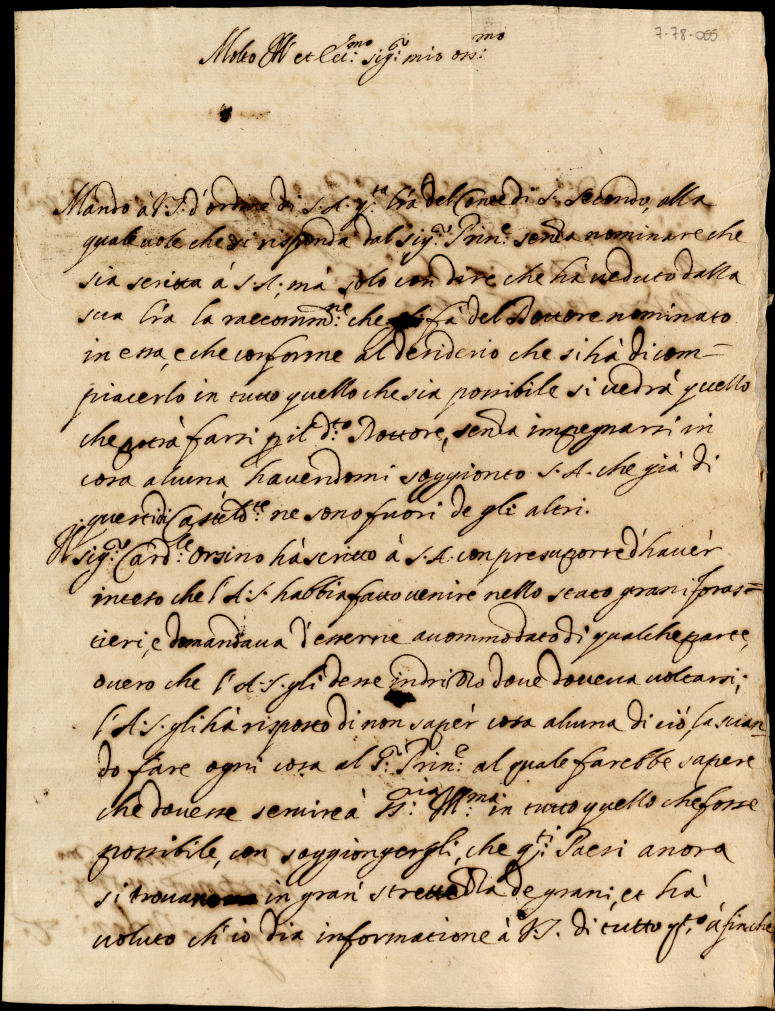 7-78-055
Molto Ill et Ecc:mo sig:r mio oss:mo
Mando à V.S. d'ordine di S.A. q:ta l'ra del Conte di S. Secondo, alla
quale vole che si risponda dal sig:r Prin:e senza nominare che
sia scritta à S.A, mà solo con dire, che hà veduto dalla
sua l'ra la raccomm:ne che fà del Dottore nominato
in essa, e che conforme al desiderio che si hà di com=
piacerlo in tutto quello che sia possibile si vedrà quello
che potrà farsi p il d:to Dottore, senza impegnarsi in
cosa alcuna havendomi soggionto S.A. che già di
questi di ne sono fuori de gli altri.
Il sig:r Card:le Orsino hà scritto à S.A. con presuporre d'havèr
inteso che l'A.S. habbia fatto venire nello stato grani foras=
tieri, e domandava d'esserne accommodato di qualche parte,
overo che l'A.S. gli desse indrizzo dove doveva voltarsi;
l'A.S. gli hà risposto di non sapèr cosa alcuna di ciò lascian
do fare ogni cosa al S:r Prin:e al quale farebbe sapere
che dovesse servire à S:ria Ill:ma in tutto quello che fosse
possibile, con soggiongergli, che q:ti Paesi ancora
si trova in gran strettezza de grani, et hà
voluto ch'io dia informatione à V.S. di tutto q:to à finche